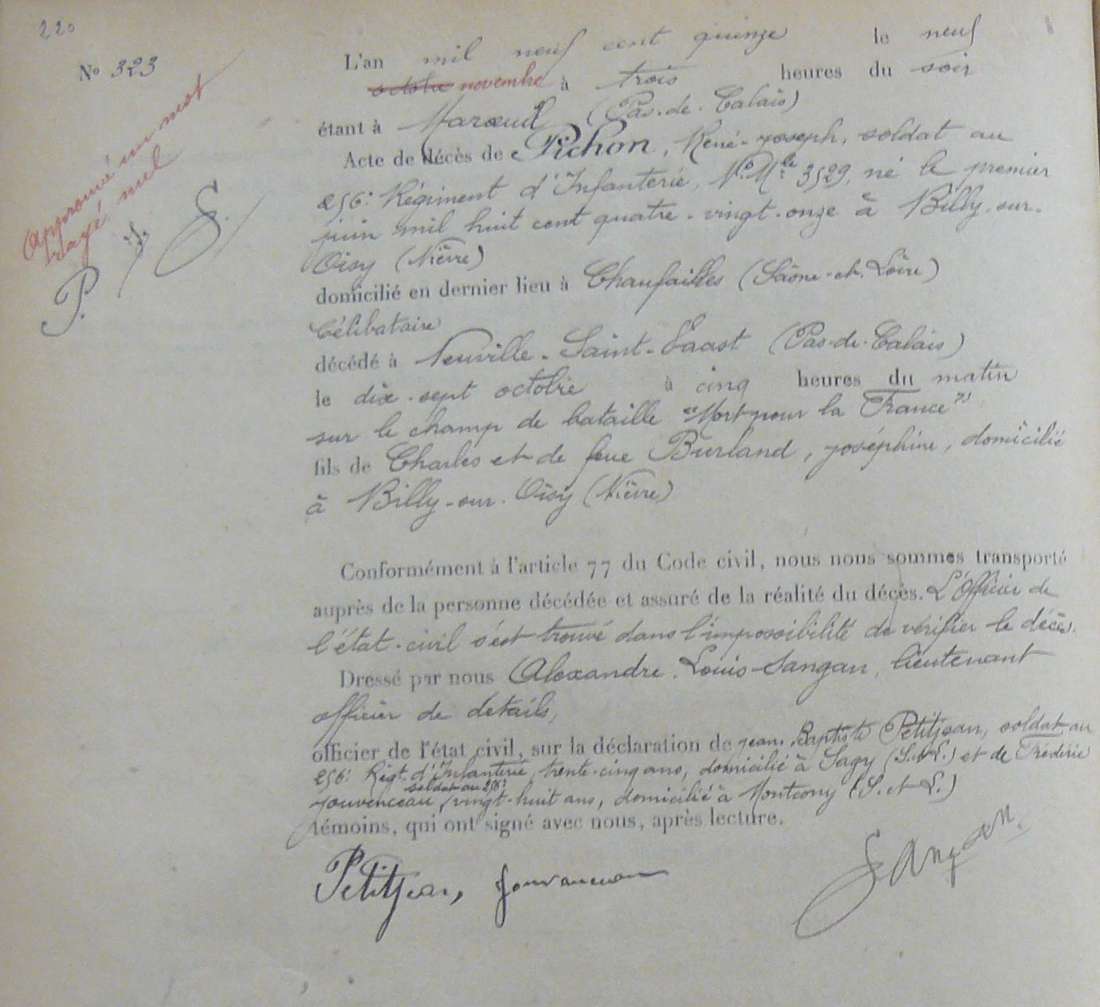 220
N° 323
Approuvé un mot
rayé nul
P. J. S.
L'an mil neuf cent quinze le neuf
octobre novembre à trois heures du soir
étant à Maroeuil (Pas-de-Calais)
Acte de décès de Pichon, René-Joseph, soldat au
256e Régiment d'Infanterie, N° Mle 3529, né le premier
juin mil huit cent quatre-vingt-onze à Billy-sur-
Oisy (Nièvre)
domicilié en dernier lieu à Chauffailles (Saône-et-Loire)
Célibataire
décédé à Neuville-Saint-Vaast (Pas-de-Calais)
le dix-sept octobre à cinq heures du matin
sur le champ de bataille "Mort pour la France"
fils de Charles et de feue Burland, Joséphine, domicilié
à Billy-sur-Oisy (Nièvre)
Conformément à l'article 77 du Code civil, nous nous sommes transporté
auprès de la personne décédée et assuré de la réalité du décès. L'Officier de
l'état-civil s'est trouvé dans l'impossibilité de vérifier le décès.
Dressé par nous Alexandre, Louis Sangan, lieutenant
officier de détails,
officier de l'état civil, sur la déclaration de Jean-Baptiste Petitjean, soldat au
256e Régt d'Infanterie, trente-cinq ans, domicilié à Sagy (S.&L.) et de Frédéric
soldat au 256e
Jouvenceau, vingt-huit ans, domicilié à Montcony (S. et L.)
témoins, qui ont signé avec nous, après lecture.
Petitjean, Jouvenceau
Sangan